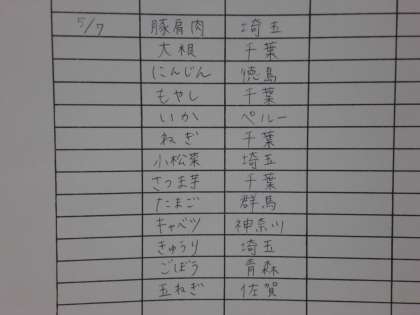 5/7 豚肩肉 埼玉
大根 千葉
にんじん 徳島
もやし 千葉
いか ペルー
ねぎ 千葉
小松菜 埼玉
さつま芋 千葉
たまご 群馬
キャベツ 神奈川
きゅうり 埼玉
ごぼう 青森
玉ねぎ 佐賀